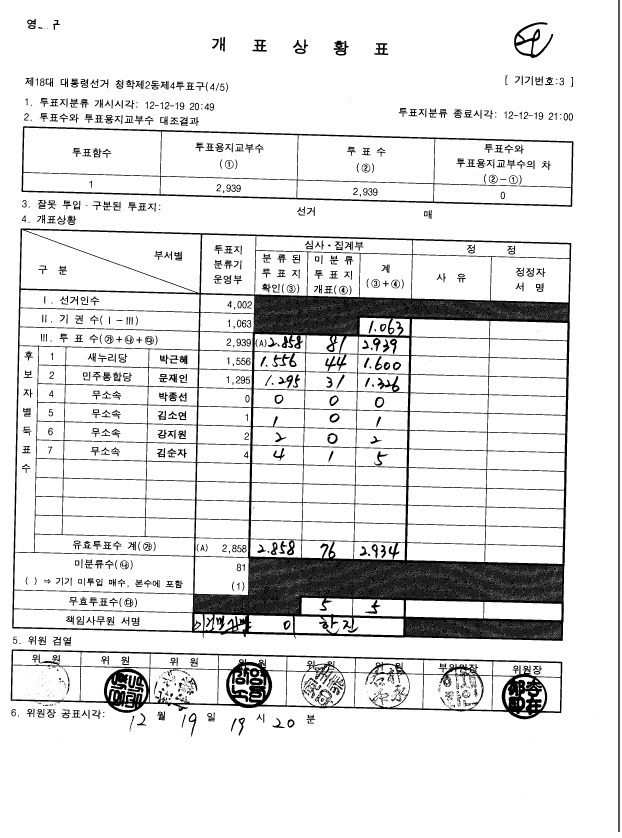 개 표 상 황 표
제18대 대통령선거 청학제2동제4투표구(4/5)
[ 기기번호:3 ]
1. 투표지분류 개시시각: 12-12-19 20:49
투표지분류 종료시각: 12-12-19 21:00
2. 투표수와 투표용지교부수 대조결과
투표함수 투표용지교부수 (①) 투 표 수 (②) 투표수와 투표용지교부수의 차 (②-①)
1 2,939 2,939 0
3. 잘못 투입·구분된 투표지: 선거 매
4. 개표상황
구 분 부서별 투표지 분류기 운영부 심사·집계부 정 정
분 류 된 투 표 지 확인(③) 미 분 류 투 표 지 개표(④) 계 (③+④) 사 유 정정자 서 명
Ⅰ. 선거인수 4,002
Ⅱ. 기 권 수(Ⅰ-Ⅲ) 1,063 1.063
Ⅲ. 투 표 수(㉮+㉯+㉰) 2,939 (A) 2.858 81 2.939
후보자별득표수
1 새누리당 박근혜 1,556 1.556 44 1.600
2 민주통합당 문재인 1,295 1.295 31 1.326
4 무소속 박종선 0 0 0 0
5 무소속 김소연 1 1 0 1
6 무소속 강지원 2 2 0 2
7 무소속 김순자 4 4 1 5
유효투표수 계(㉮) (A) 2,858 2.858 76 2.934
미분류수(㉯) 81
( ) ⇒ 기기 미투입 매수, 본수에 포함 (1)
무효투표수(㉰) 5 5
책임사무원 서명 이 한진
5. 위원 검열
위 원 위 원 위 원 위 원 위 원 위 원 부위원장 위원장
6. 위원장 공표시각: 12 월 19 일 19 시 20 분